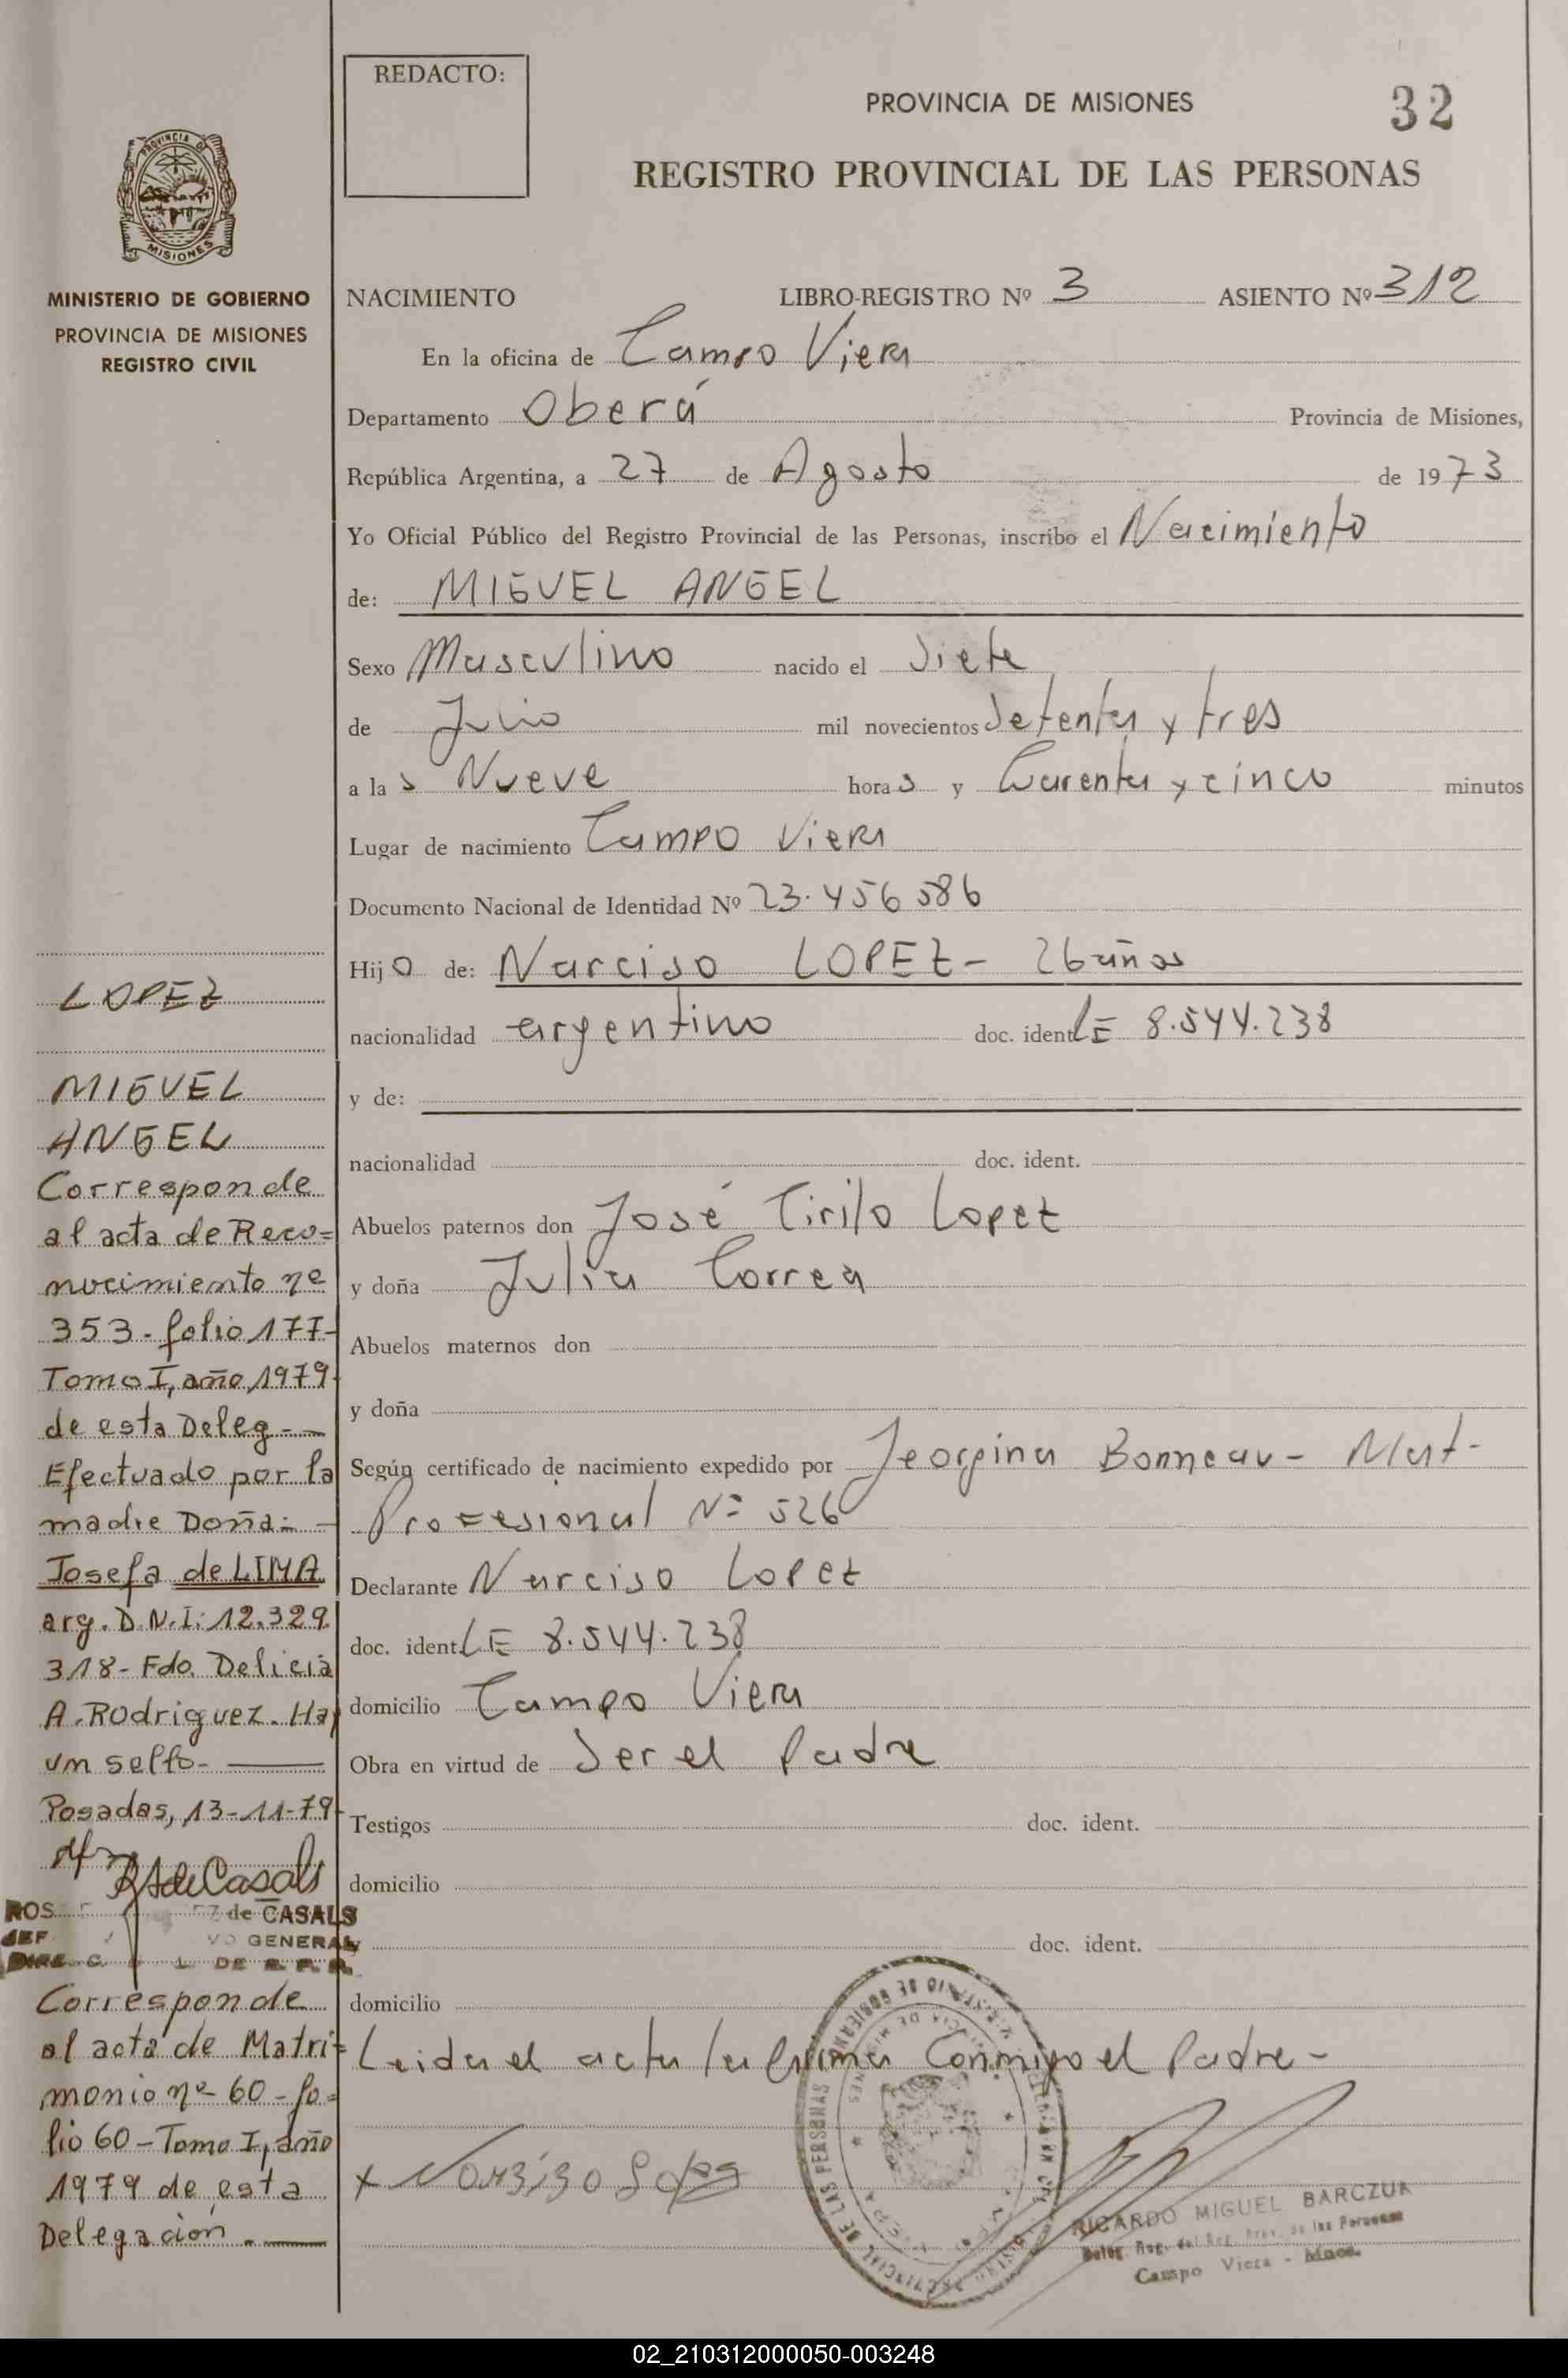 REDACTO:
PROVINCIA DE MISIONES
32
REGISTRO PROVINCIAL DE LAS PERSONAS
MISIONES
MINISTERIO DE GOBIERNO
PROVINCIA DE MISIONES
REGISTRO CIVIL
NACIMIENTO LIBRO-REGISTRO Nº 3 ASIENTO Nº 312
En la oficina de Campo Viera
Departamento Oberá Provincia de Misiones,
República Argentina, a 27 de Agosto de 1973
Yo Oficial Público del Registro Provincial de las Personas, inscribo el Nacimiento
de: MIGUEL ANGEL
Sexo Masculino nacido el Siete
de Julio mil novecientos Setenta y tres
a las Nueve horas y Cuarenta y cinco minutos
Lugar de nacimiento Campo Viera
Documento Nacional de Identidad Nº 23.456586
Hijo de: Narciso LOPEZ - 26 años
nacionalidad argentino doc. ident. LE 8.544.238
y de:
nacionalidad doc. ident.
Abuelos paternos don José Cirilo Lopez
y doña Julia Correa
Abuelos maternos don
y doña
Según certificado de nacimiento expedido por Jeorgina Bonneau - Mat-
Profesional Nº 526
Declarante Narciso Lopez
doc. ident. LE 8.544.238
domicilio Campo Viera
Obra en virtud de Ser el Padre
Testigos doc. ident.
domicilio
doc. ident.
domicilio
Leida el acta la firma Conmigo el Padre-
x Narsiso Lopes
RICARDO MIGUEL BARCZUK
Deleg. Reg. del Reg. Prov. de las Personas
Campo Viera - Mnes.
LOPEZ
MIGUEL
ANGEL
Corresponde
al acta de Reco=
nocimiento nº
353 - folio 177-
Tomo I, año 1979
de esta Deleg -
Efectuado por la
madre Doña: -
Josefa de LIMA
arg. D.N.I: 12.329.
318 - Fdo. Delicia
A. Rodriguez. Hay
un sello-
Posadas, 13-11-79
de CASALS
GENERAL
DE R. P. P.
Corresponde
al acta de Matri=
monio nº 60 - fo=
lio 60 - Tomo I, año
1979 de esta
Delegación.
02_210312000050-003248